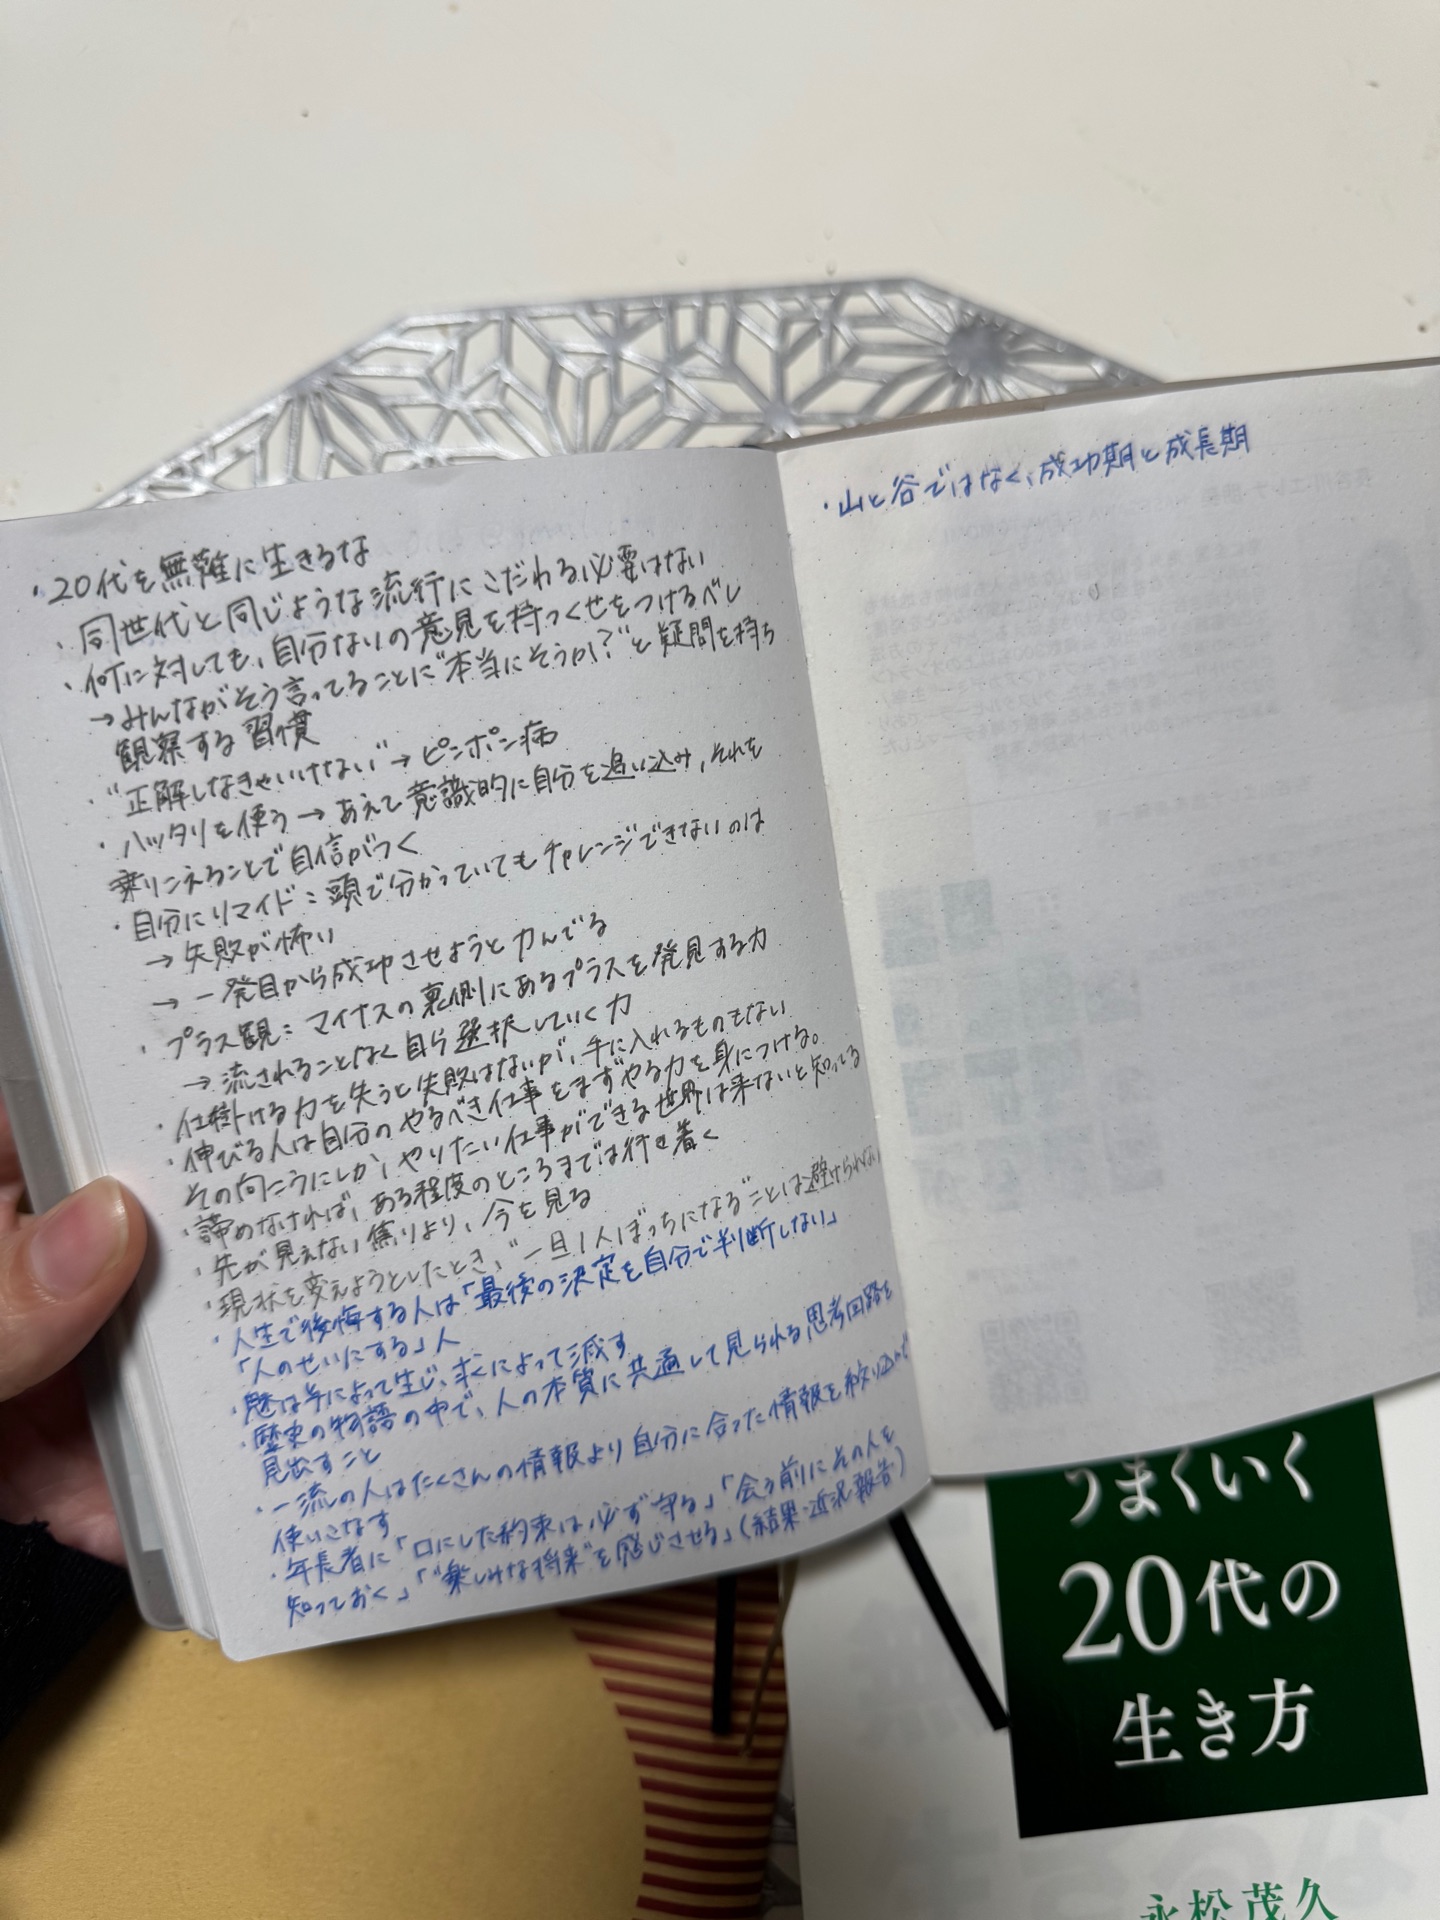 ・20代を無難に生きるな
・同世代と同じような流行にこだわる必要はない
・何に対しても、自分ないの意見を持つくせをつけるべし
→みんながそう言ってることに"本当にそうか?"と疑問を持ち
観察する習慣
・"正解しなきゃいけない"→ピンポン病
・ハッタリを使う→あえて意識的に自分を追い込み、それを
乗りこえることで自信がつく
・自分にリマイド:頭で分かっていてもチャレンジできないのは
→失敗が怖い
→一発目から成功させようと力んでる
・プラス観:マイナスの裏側にあるプラスを発見する力
→流されることなく自ら選択していく力
・仕掛ける力を失うと失敗はないが、手に入れるものもない
・伸びる人は自分のやるべき仕事をまずやる力を身につける。
その向こうにしか、やりたい仕事ができる世界は来ないと知ってる
・諦めなければ、ある程度のところまでは行き着く
・先が見えない焦りより、今を見る
・現状を変えようとしたとき、"一旦1人ぼっちになる"ことは避けられない
・人生で後悔する人は「最後の決定を自分で判断しない」
「人のせいにする」人
・魅は与によって生じ、求によって減す
・歴史の物語の中で、人の本質に共通して見られる思考回路を
見出すこと
・一流の人はたくさんの情報より自分に合った情報を絞り込んで
使いこなす
・年長者に「口にした約束は必ず守る」「会う前にその人を
知っておく」「"楽しみな将来"を感じさせる」(結果・近況報告)
・山と谷ではなく、成功期と成長期
うまくいく
20代の
生き方
永松茂久